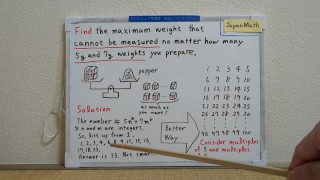 JapanMath
Find the maximum weight that
cannot be measured no matter how many
5g and 7g weights you prepare.
pepper
as much as
you want!
Solution
The number ≠ 5n + 7m
n, m are integers.
So, list up from 1.
Answer is 23. Not smart.
Better
Way
1 2 3 4 5
6 7 8 9 10
11 12 13 14 15
16 17 18 19 20
21 22 23 24 25
26 27 28 29 30
96 97 98 99 100
Consider multiples
of 5 and